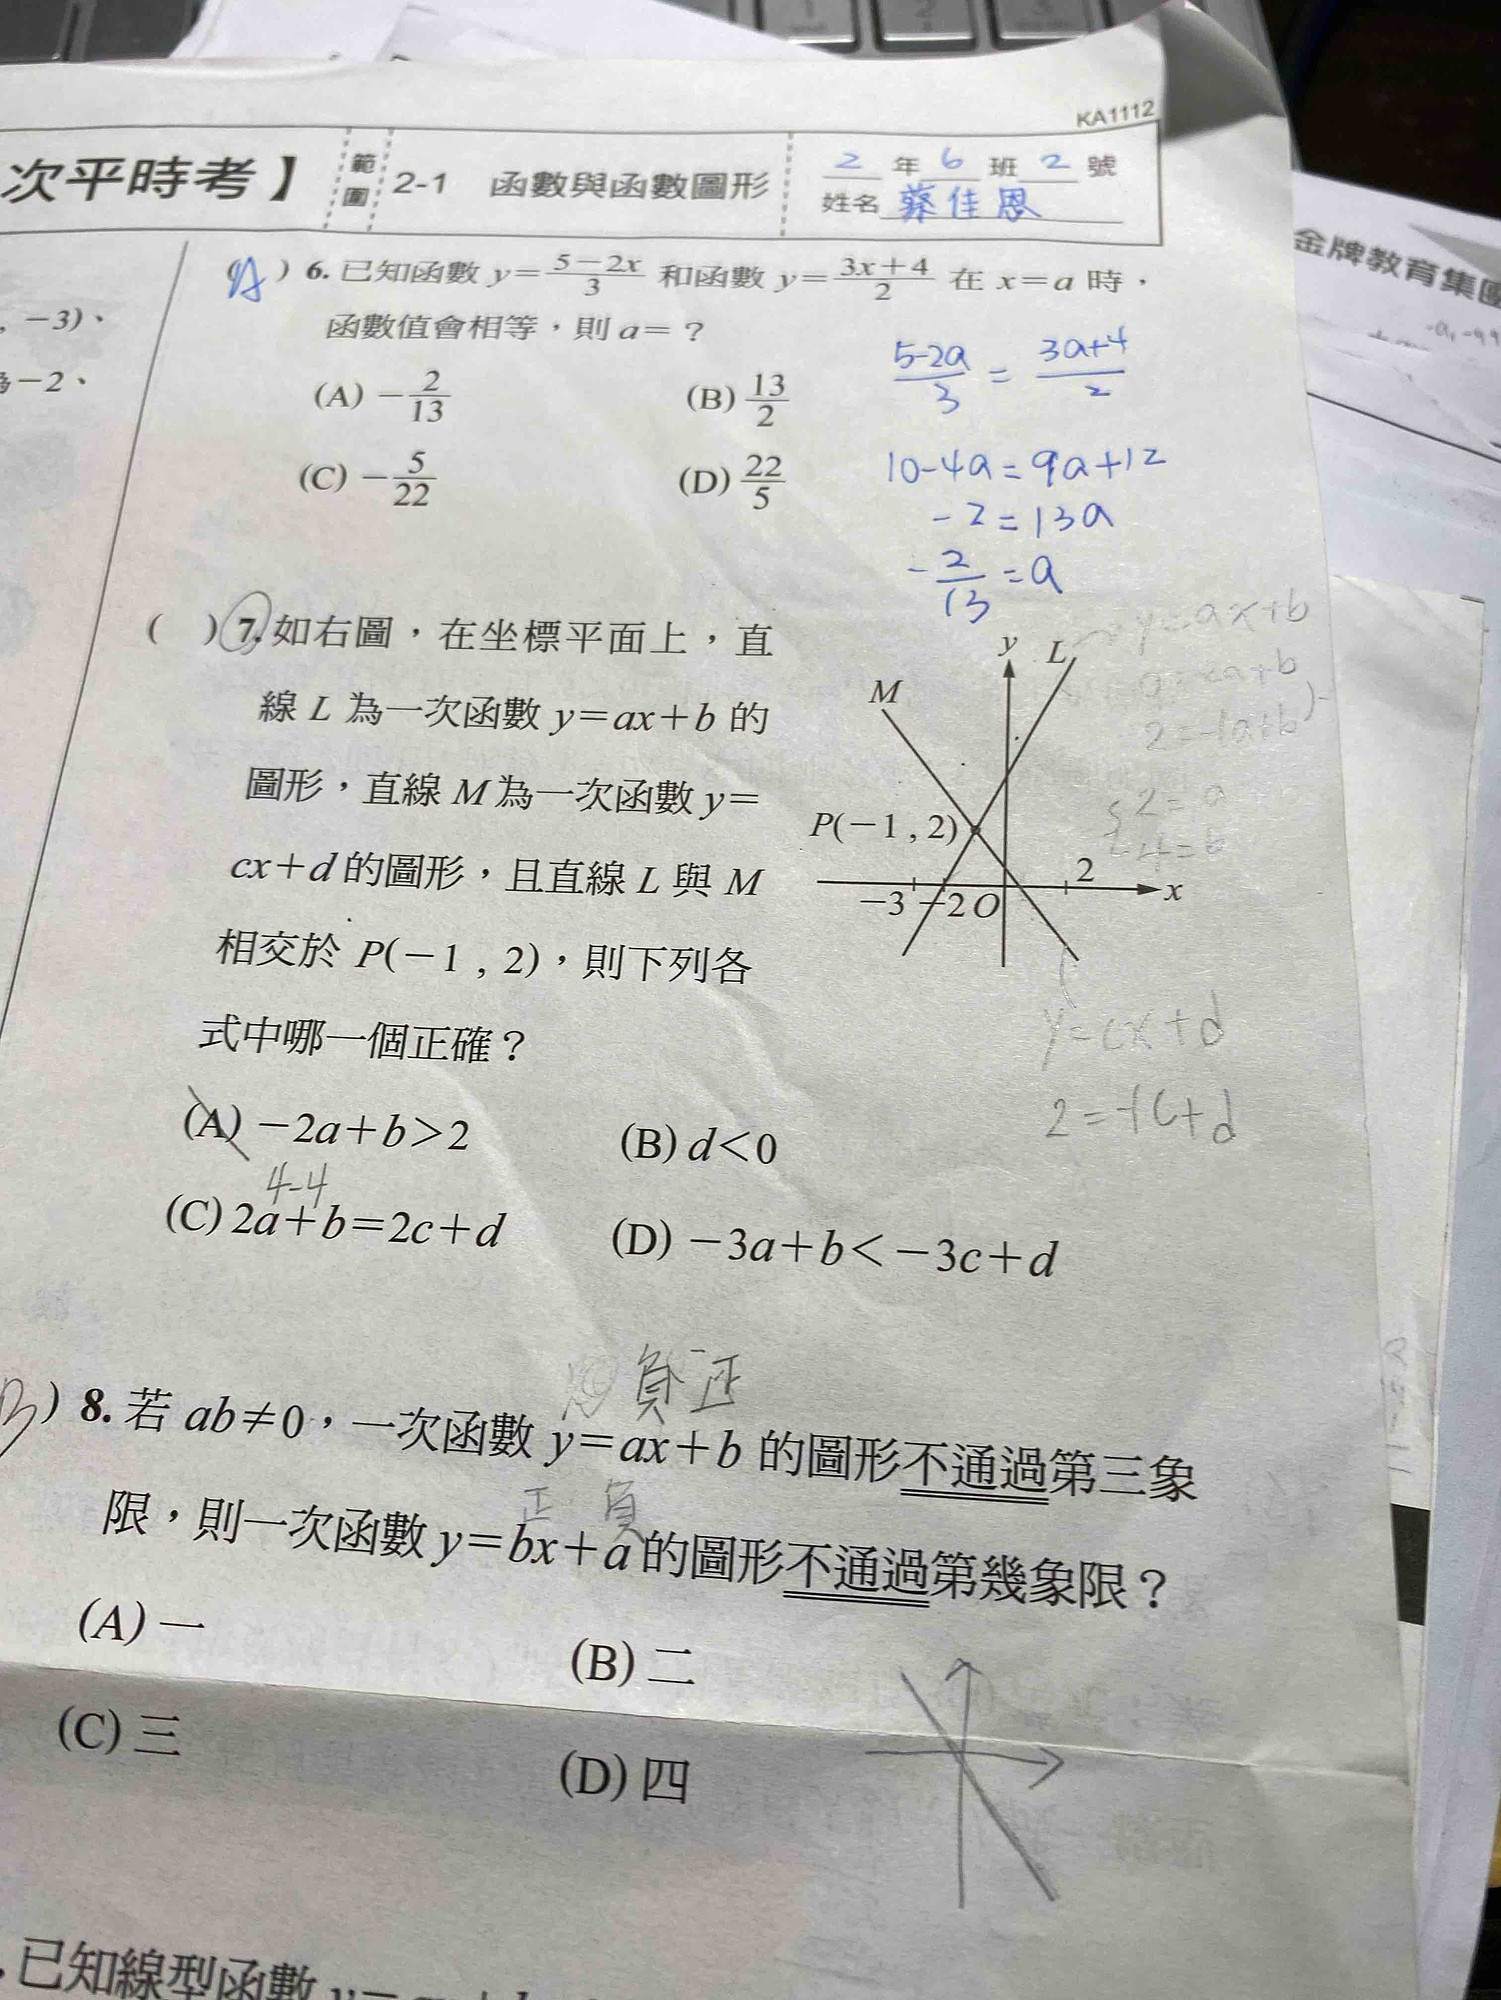 KA1112
次平時考】 範圍 2-1 函數與函數圖形
2 年 6 班 2 號
姓名 蔡佳恩
金牌教育集團
, −3)、
−2、
(A) 6. 已知函數 y=\frac{5−2x}{3} 和函數 y=\frac{3x+4}{2} 在 x=a 時，
函數值會相等，則 a=？
(A) −\frac{2}{13} (B) \frac{13}{2}
(C) −\frac{5}{22} (D) \frac{22}{5}
\frac{5-2a}{3} = \frac{3a+4}{2}
10-4a=9a+12
-2=13a
-\frac{2}{13}=a
( ) 7. 如右圖，在坐標平面上，直
線 L 為一次函數 y=ax+b 的
圖形，直線 M 為一次函數 y=
cx+d 的圖形，且直線 L 與 M
相交於 P(−1 , 2)，則下列各
式中哪一個正確？
y L
M
P(−1 , 2)
−3 −2 O 2 x
y=ax+b
2=-1a+b
2=a
4=b
y=cx+d
2=-1c+d
(A) −2a+b>2 (B) d<0
4-4
(C) 2a+b=2c+d (D) −3a+b<−3c+d
負 正
B) 8. 若 ab≠0，一次函數 y=ax+b 的圖形不通過第三象
正 負
限，則一次函數 y=bx+a 的圖形不通過第幾象限？
(A) 一 (B) 二
(C) 三 (D) 四
已知線型函數